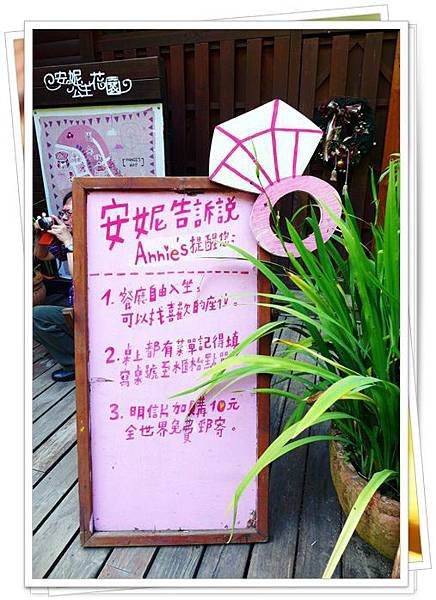 安妮公主花園
安妮告訴說
Annie's提醒您:
1. 餐廳自由入坐,
可以找喜歡的座位。
2. 桌上都有菜單記得填
寫桌號至櫃枱點單
3. 明信片加購10元
全世界免費郵寄。